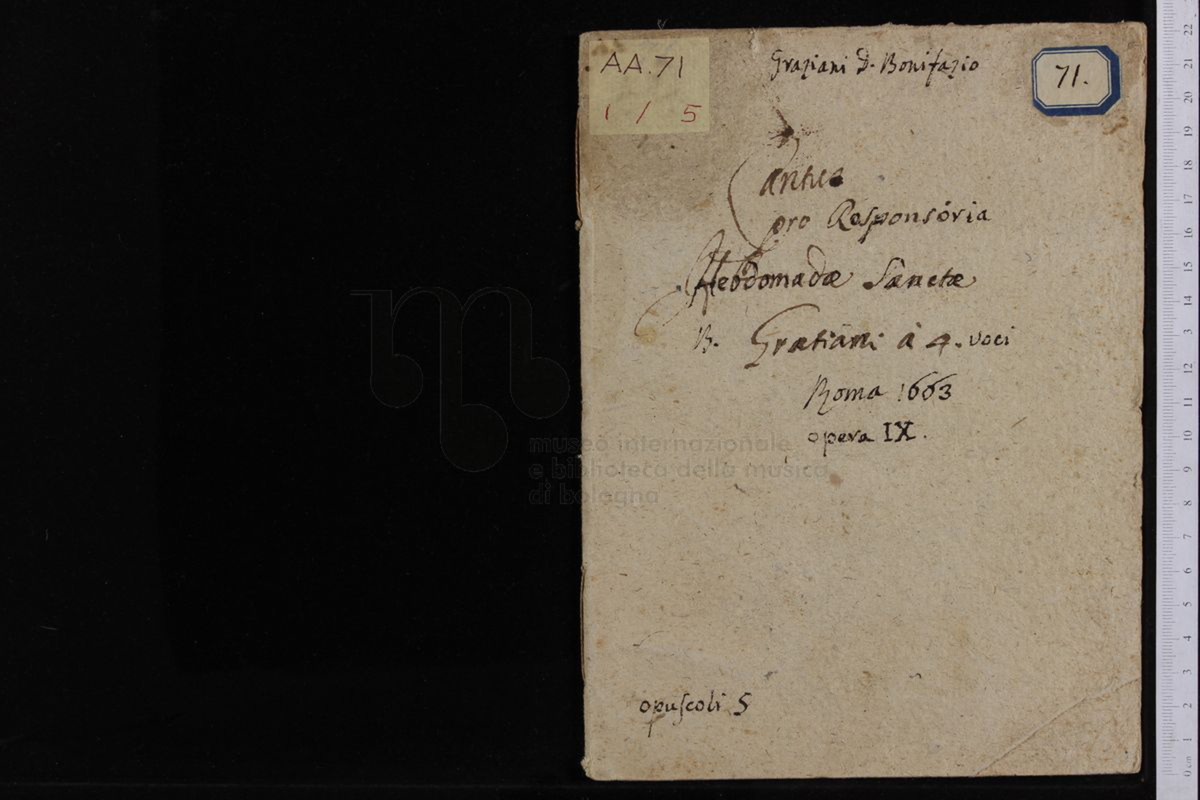 AA.71
1 / 5
Graziani D. Bonifazio
71.
Cantus
pro Responsória
Hebdomadæ Sanctæ
B. Gratiani à 4. voci
Roma 1663
opera IX.
museo internazionale
e biblioteca della musica
di bologna
opuscoli 5
0 cm 1 2 3 4 5 6 7 8 9 10 11 12 13 14 15 16 17 18 19 20 21 22